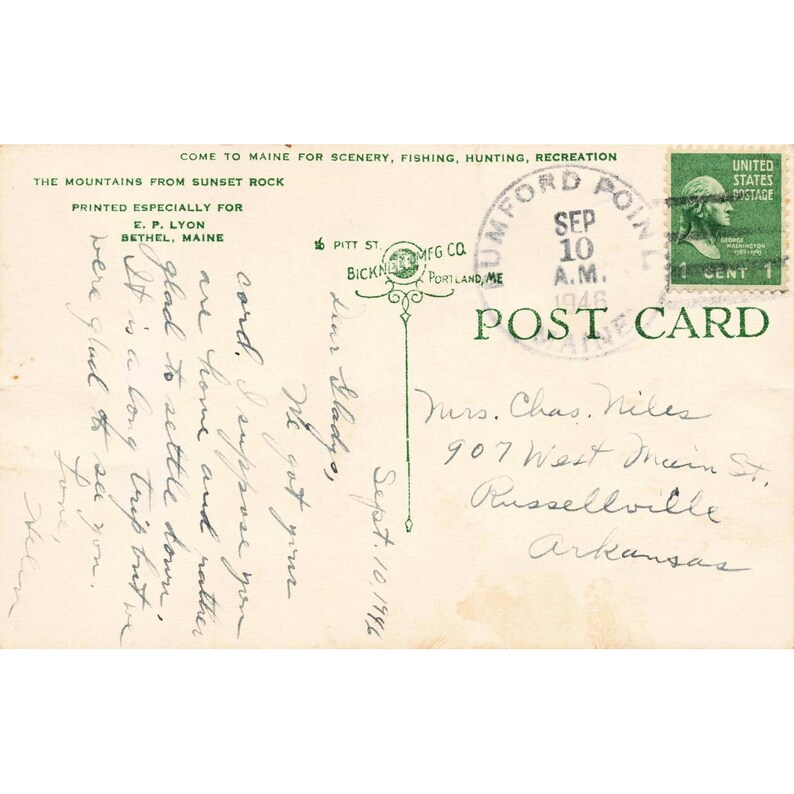 COME TO MAINE FOR SCENERY, FISHING, HUNTING, RECREATION
THE MOUNTAINS FROM SUNSET ROCK
PRINTED ESPECIALLY FOR
E. P. LYON
BETHEL, MAINE
16 PITT ST.
BICKNELL MFG. CO.
PORTLAND, ME
RUMFORD POINT
SEP
10
A.M.
1946
MAINE
UNITED
STATES
POSTAGE
GEORGE
WASHINGTON
1 CENT 1
POST CARD
Sept. 10, 1946
Dear Gladys,
We got your
card. I suppose you
are home and rather
glad to settle down.
It is a long trip but we
were glad to see you.
Love,
Helen
Mrs. Chas. Niles
907 West Main St.
Russellville
Arkansas